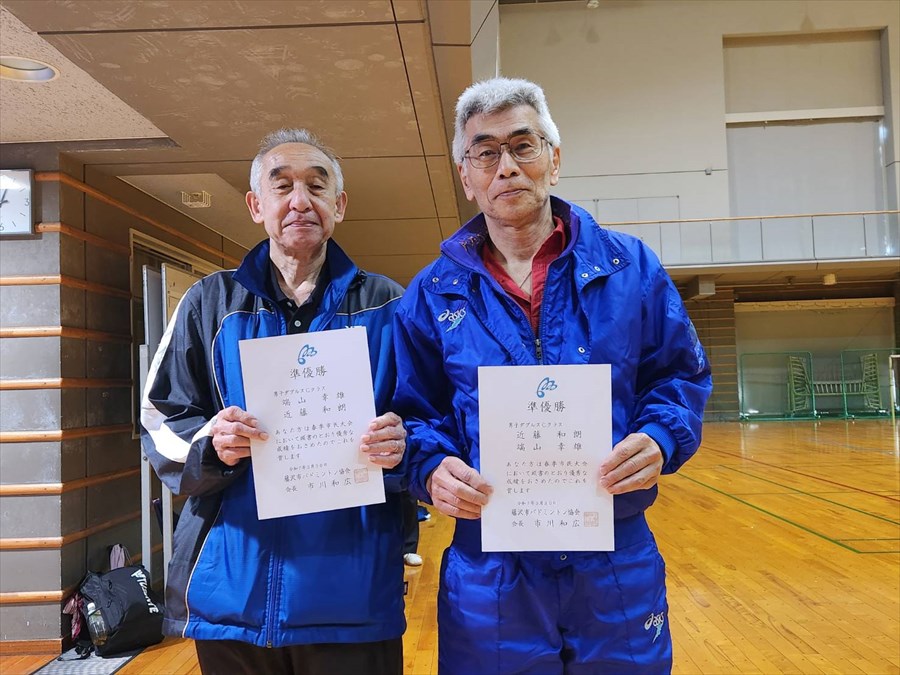 準優勝
男子ダブルスCクラス
端山 幸雄
近藤 和朗
あなた達は春季市民大会
において頭書のとおり優秀な
成績をおさめたのでこれを
賞します
藤沢市バドミントン協会
会長 市川和広
準優勝
男子ダブルスCクラス
近藤 和朗
端山 幸雄
あなた達は春季市民大会
において頭書のとおり優秀な
成績をおさめたのでこれを
賞します
藤沢市バドミントン協会
会長 市川和広
asics
asics